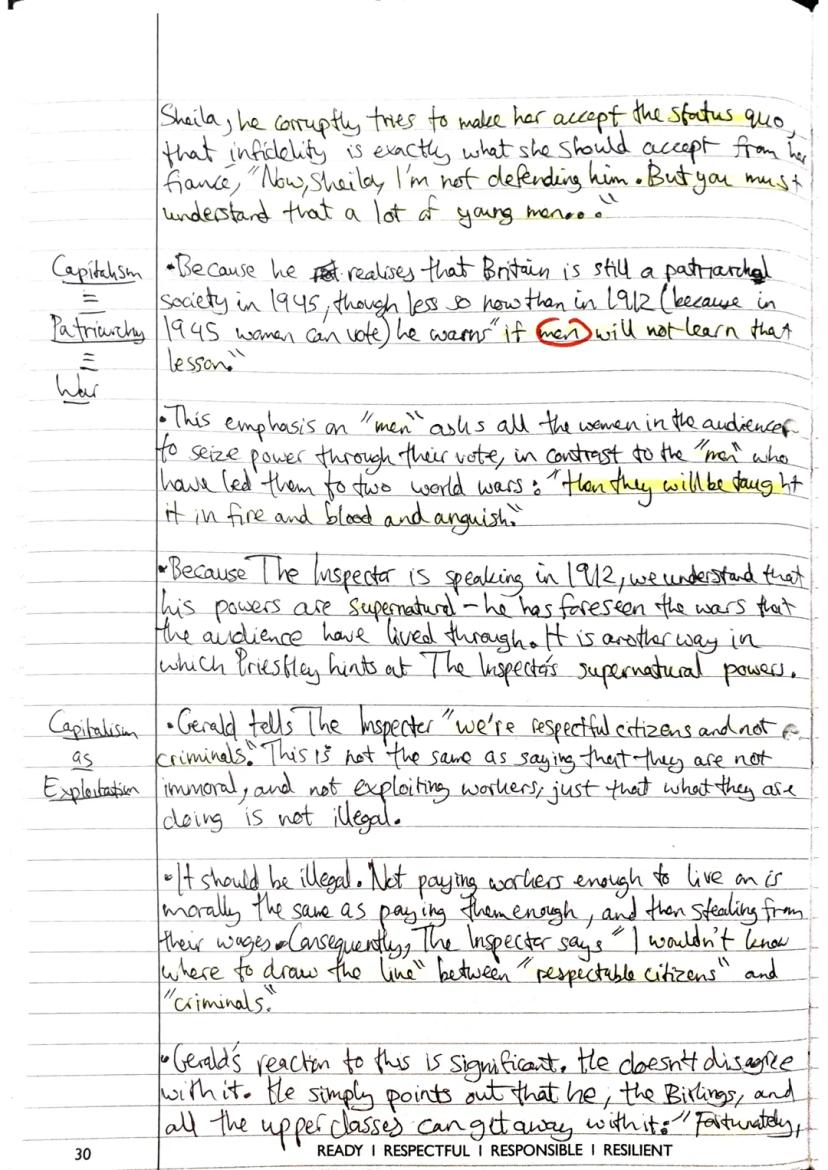 Sheila, he corruptly tries to make her accept the status quo,
that infidelity is exactly what she should accept from her
fiancé, "Now, Sheila, I'm not defending him. But you must
understand that a lot of young men..."
Capitalism
=
Patriarchy
=
War
•Because he realises that Britain is still a patriarchal
society in 1945, though less so now than in 1912 (because in
1945 women can vote) he warns "if men will not learn that
lesson."
•This emphasis on "men" asks all the women in the audience
to seize power through their vote, in contrast to the "men" who
have led them to two world wars: "then they will be taught
it in fire and blood and anguish."
•Because The Inspector is speaking in 1912, we understand that
his powers are supernatural – he has foreseen the wars that
the audience have lived through. It is another way in
which Priestley hints at The Inspector's supernatural powers.
Capitalism
as
Exploitation
•Gerald tells The Inspector "we're respectful citizens and not
criminals." This is not the same as saying that they are not
immoral, and not exploiting workers, just that what they are
doing is not illegal.
•It should be illegal. Not paying workers enough to live on is
morally the same as paying them enough, and then stealing from
their wages. Consequently, The Inspector says "I wouldn't know
where to draw the line" between "respectable citizens" and
"criminals."
•Gerald's reaction to this is significant. He doesn't disagree
with it. He simply points out that he, the Birlings, and
all the upper classes can get away with it: "Fortunately,
30
READY | RESPECTFUL | RESPONSIBLE | RESILIENT